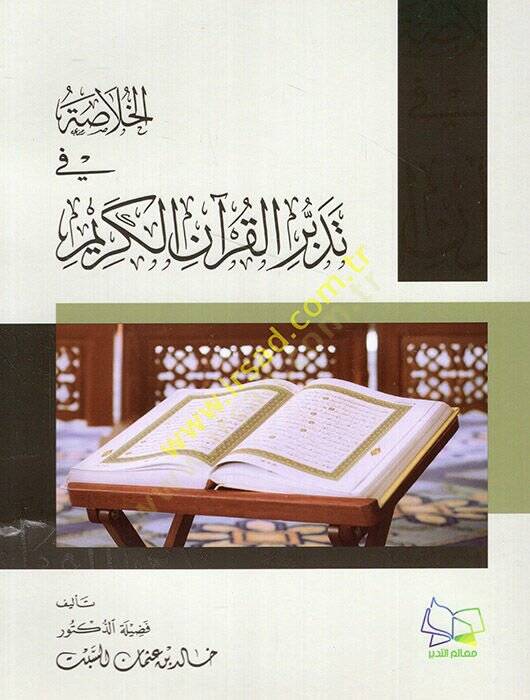 الخُلَاصَةُ
فِي
تَدَبُّرِ القُرْآنِ الكَرِيْمِ
www.irsad.com.tr
تأليف
فَضِيلَة الدُّكتُور
خَالِد بْن عُثمَان السَّبْت
معالم التدبر